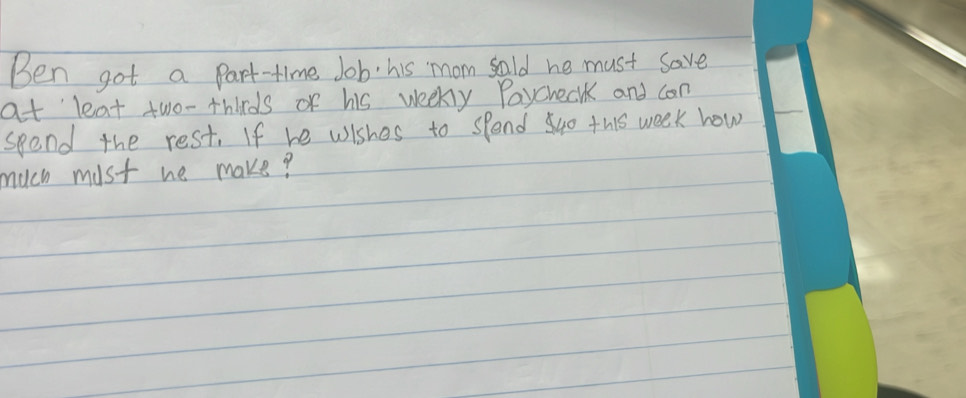 Ben got a Part-time Job. his mom said he must save
at leat two-thirds of his weekly Paycheck and can
spend the rest. If he wishes to spend $40 this week how
much must he make?